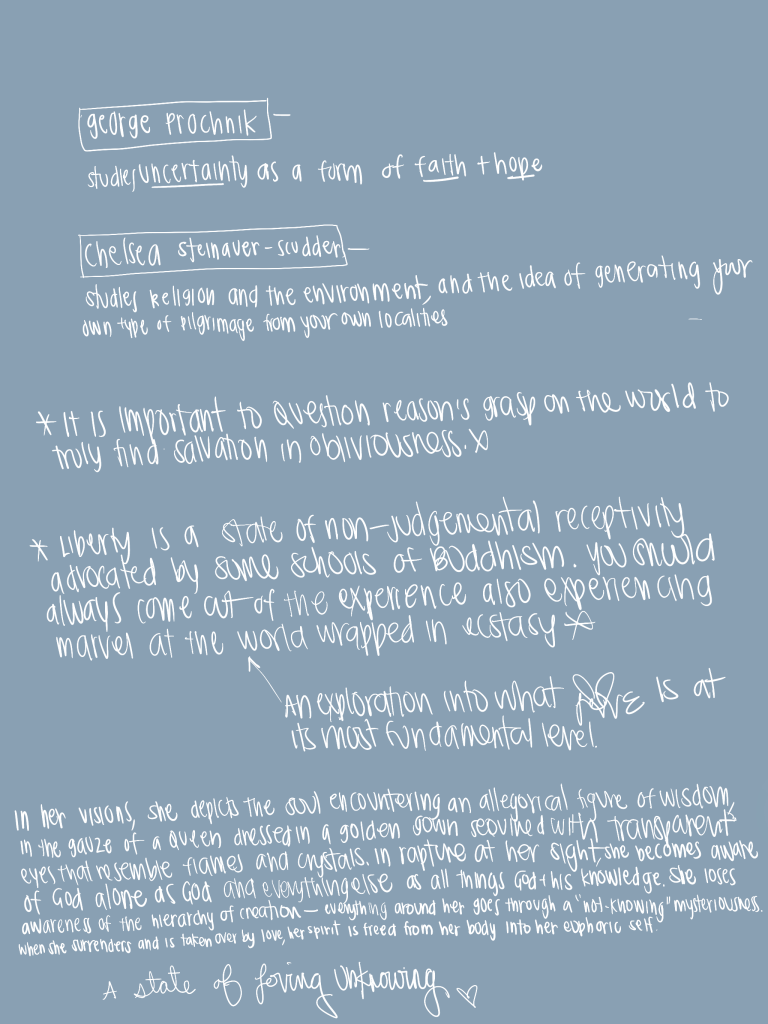 george Prochnik —
studies uncertainty as a form of faith + hope
Chelsea steinauer-scudder —
studies religion and the environment, and the idea of generating your
own type of pilgrimage from your own localities
* It is important to question reason's grasp on the world to
truly find salvation in obliviousness. *
* Liberty is a state of non-judgemental receptivity
advocated by some schools of Buddhism. you should
always come out of the experience also experiencing
marvel at the world wrapped in ecstasy *
An exploration into what love is at
its most fundamental level.
In her visions, she depicts the soul encountering an allegorical figure of wisdom,
in the gauze of a queen dressed in a golden gown with transparent
eyes that resemble flames and crystals. in rapture at her sight, she becomes aware
of God alone as God and everything else as all things God + his knowledge. she loses
awareness of the hierarchy of creation — everything around her goes through a "not-knowing" mysteriousness.
when she surrenders and is taken over by love, her spirit is freed from her body into her euphoric self.
A state of loving unknowing ♡